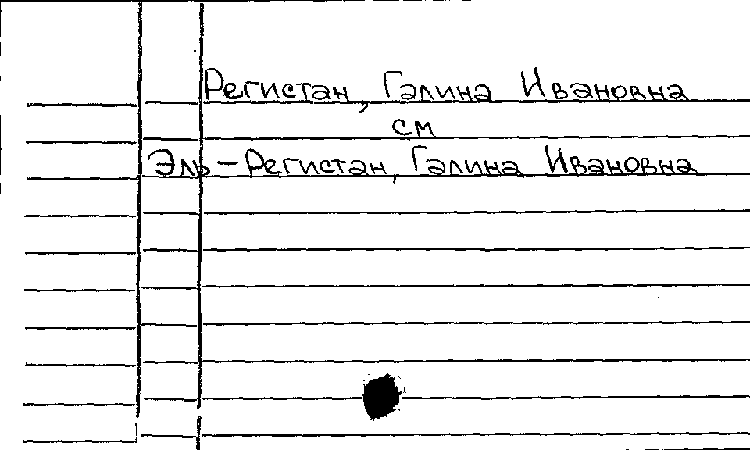 Регистан, Галина Ивановна
см
Эль-Регистан, Галина Ивановна